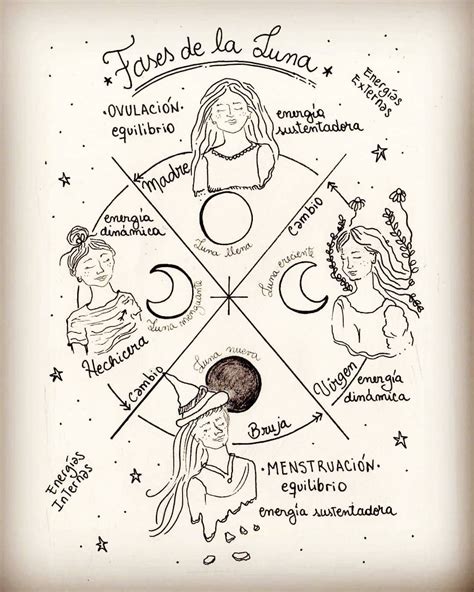 Fases de la Luna
Energías
Externas
·OVULACIÓN·
equilibrio
energía
sustentadora
Madre
Cambio
energía
dinámica
Luna llena
Luna menguante
Luna creciente
Luna nueva
Hechicera
Cambio
Virgen
energía
dinámica
Bruja
·MENSTRUACIÓN·
equilibrio
energía sustentadora
Energías
Internas